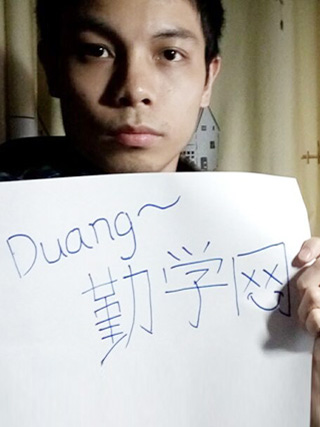 Duang~
勤学网